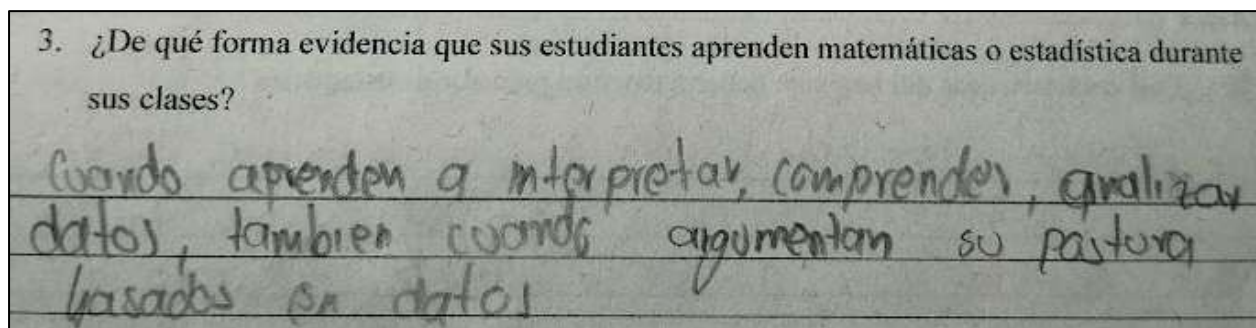 3. ¿De qué forma evidencia que sus estudiantes aprenden matemáticas o estadística durante
sus clases?
Cuando aprenden a interpretar, comprender, analizar
datos, tambien cuando argumentan su pastura
basados en datos